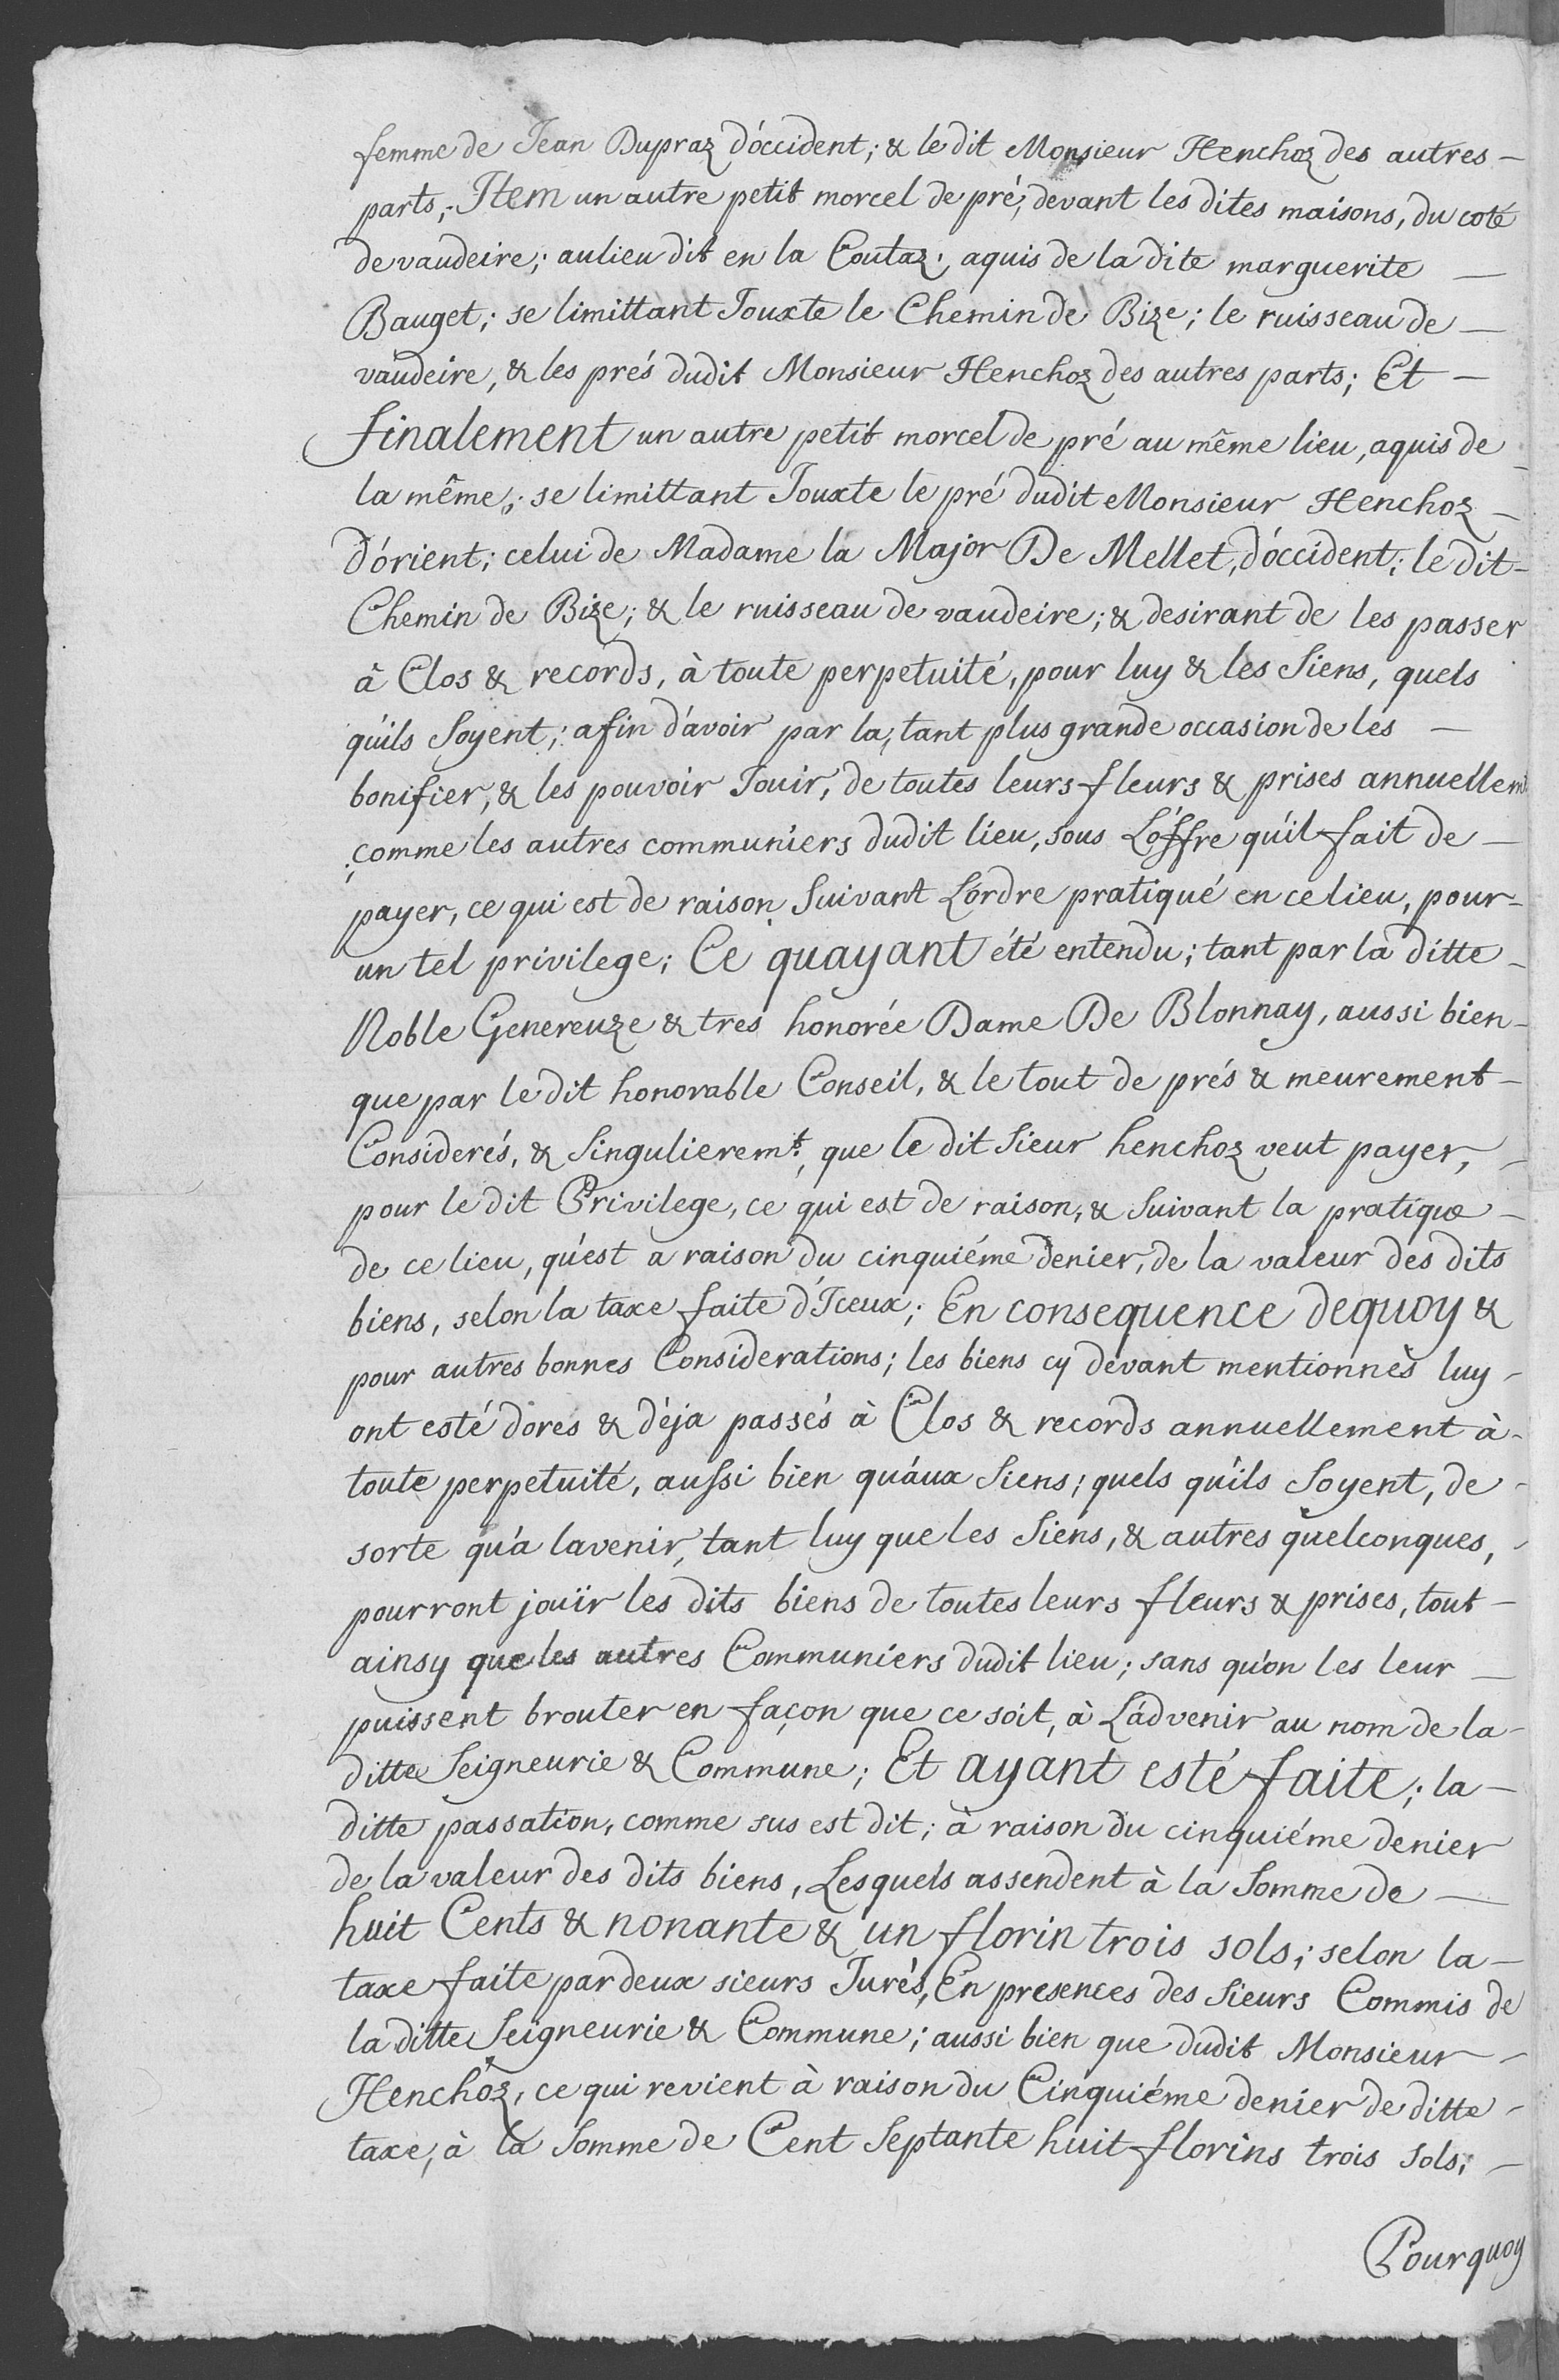 femme de Jean Dupraz d'óccident; & le dit Monsieur Henchoz des autres —
parts; Item un autre petit morcel de pré, devant les dites maisons, du coté
de vaudeire; au lieu dit en la Coutaz; aquis de la dite marguerite —
Bauget; se limittant Jouxte le Chemin de Bize; le ruisseau de —
vaudeire, & les prés dudit Monsieur Henchoz des autres parts; Et —
finalement un autre petit morcel de pré au même lieu, aquis de
la même; se limittant Jouxte le pré dudit Monsieur Henchoz —
d'órient; celui de Madame la Major De Mellet, d'óccident; le dit —
Chemin de Bize; & le ruisseau de vaudeire; & desirant de les passer
à Clos & records, à toute perpetuité, pour luy & les Siens, quels
qu'ils Soyent; afin d'avoir par la, tant plus grande occasion de les —
bonifier, & les pouvoir Jouir, de toutes leurs fleurs & prises annuellemt
comme les autres communiers dudit lieu, sous L'offre qu'il fait de —
payer, ce qui est de raison Suivant L'ordre pratiqué en ce lieu, pour —
un tel privilege; Ce quayant été entendu; tant par la ditte —
Noble Genereuze & tres honorée Dame De Blonnay, aussi bien —
que par le dit honorable Conseil, & le tout de prés & meurement —
Considerés, & Singulieremt, que le dit Sieur henchoz veut payer, —
pour le dit Privilege, ce qui est de raison, & Suivant la pratique —
de ce lieu, qu'est a raison du cinquiéme denier, de la valeur des dits
biens, selon la taxe faite d'Iceux; En consequence dequoy &
pour autres bonnes Considerations; les biens cy devant mentionnès luy —
ont esté dores & dèja passés à Clos & records annuellement à —
toute perpetuité, aussi bien qu'áux Siens; quels qu'ils Soyent, de —
sorte qu'à lavenir, tant luy que les Siens, & autres quelconques, —
pourront joüir les dits biens de toutes leurs fleurs & prises, tout —
ainsy que les autres Communiers dudit lieu; sans qu'on les leur —
puissent brouter en façon que ce soit, à L'ádvenir au nom de la —
ditte Seigneurie & Commune; Et ayant esté faite; la —
ditte passation, comme sus est dit; à raison du cinquiéme denier
de la valeur des dits biens, Lesquels assendent à la Somme de —
huit Cents & nonante & un florin trois sols; selon la —
taxe faite par deux sieurs Jurés, En presences des Sieurs Commis de
la ditte Seigneurie & Commune; aussi bien que dudit Monsieur —
Henchoz, ce qui revient à raison du Cinquiéme denier de ditte —
taxe, à la Somme de Cent Septante huit florins trois Sols, —
Pourquoy